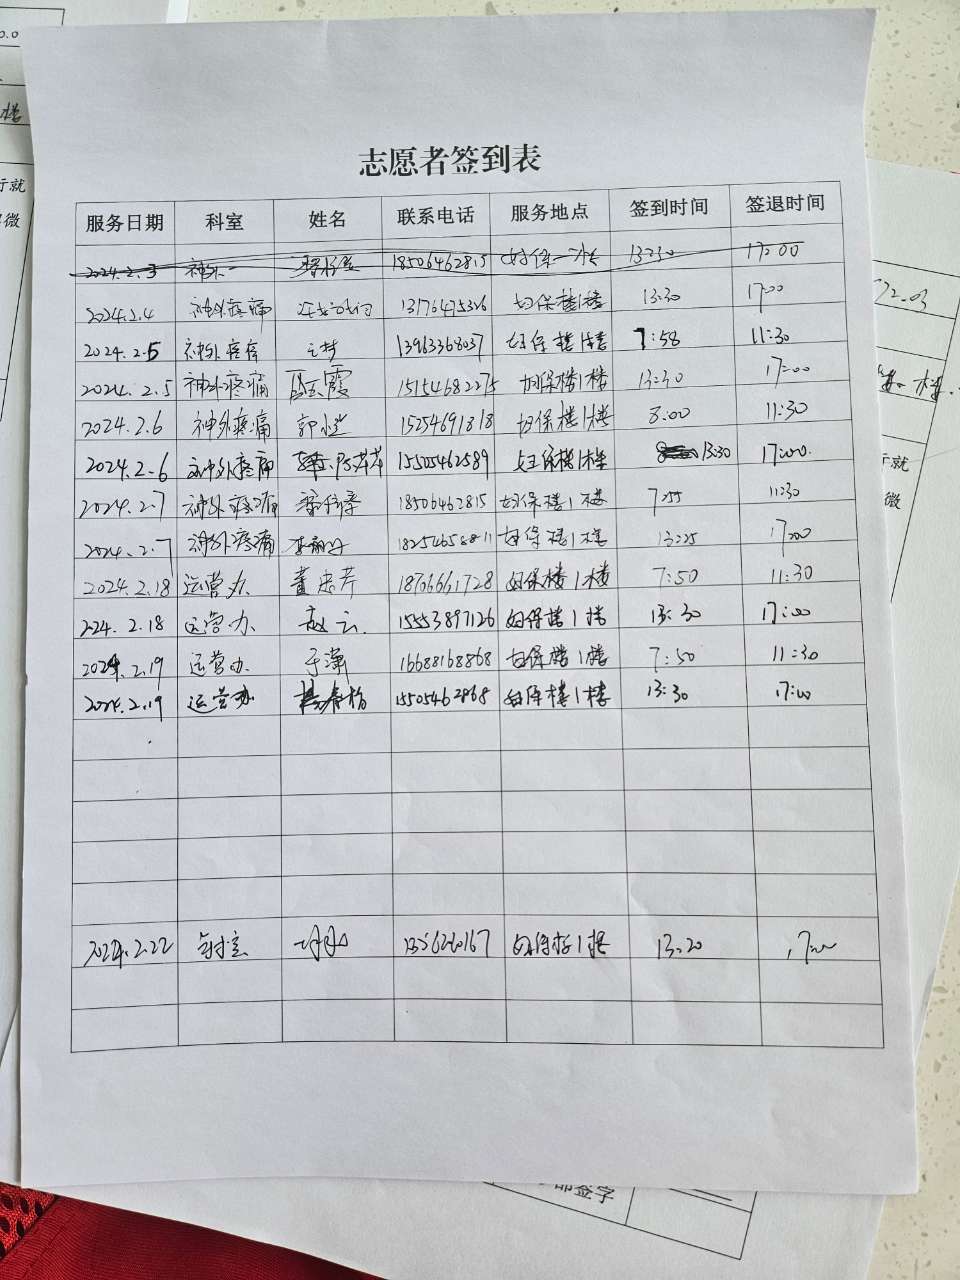 志愿者签到表
服务日期 科室 姓名 联系电话 服务地点 签到时间 签退时间
2024.2.3 神外 18506462815 妇保一楼 13:30 17:00
2024.2.4 神外疼痛 13176475326 妇保楼1楼 13:30 17:00
2024.2.5 神外疼痛 13963368037 妇保楼1楼 7:58 11:30
2024.2.5 神外疼痛 霞 15154682275 妇保楼1楼 13:30 17:00
2024.2.6 神外疼痛 郭 15254691818 妇保楼1楼 8:00 11:30
2024.2.6 神外疼痛 陈芹芹 15505462589 妇保楼1楼 13:30 17:00
2024.2.7 神外疼痛 18506462815 妇保楼1楼 7:55 11:30
2024.2.7 神外疼痛 李丽丹 18254658811 妇保楼1楼 13:25 17:00
2024.2.18 运营办 董忠芹 18706661728 妇保楼1楼 7:50 11:30
2024.2.18 运营办 赵云 15553897126 妇保楼1楼 13:30 17:00
2024.2.19 运营办 于潇 16688168868 妇保楼1楼 7:50 11:30
2024.2.19 运营办 15505462868 妇保楼1楼 13:30 17:00
2024.2.22 妇保楼1楼 13:20 17:00
部签字